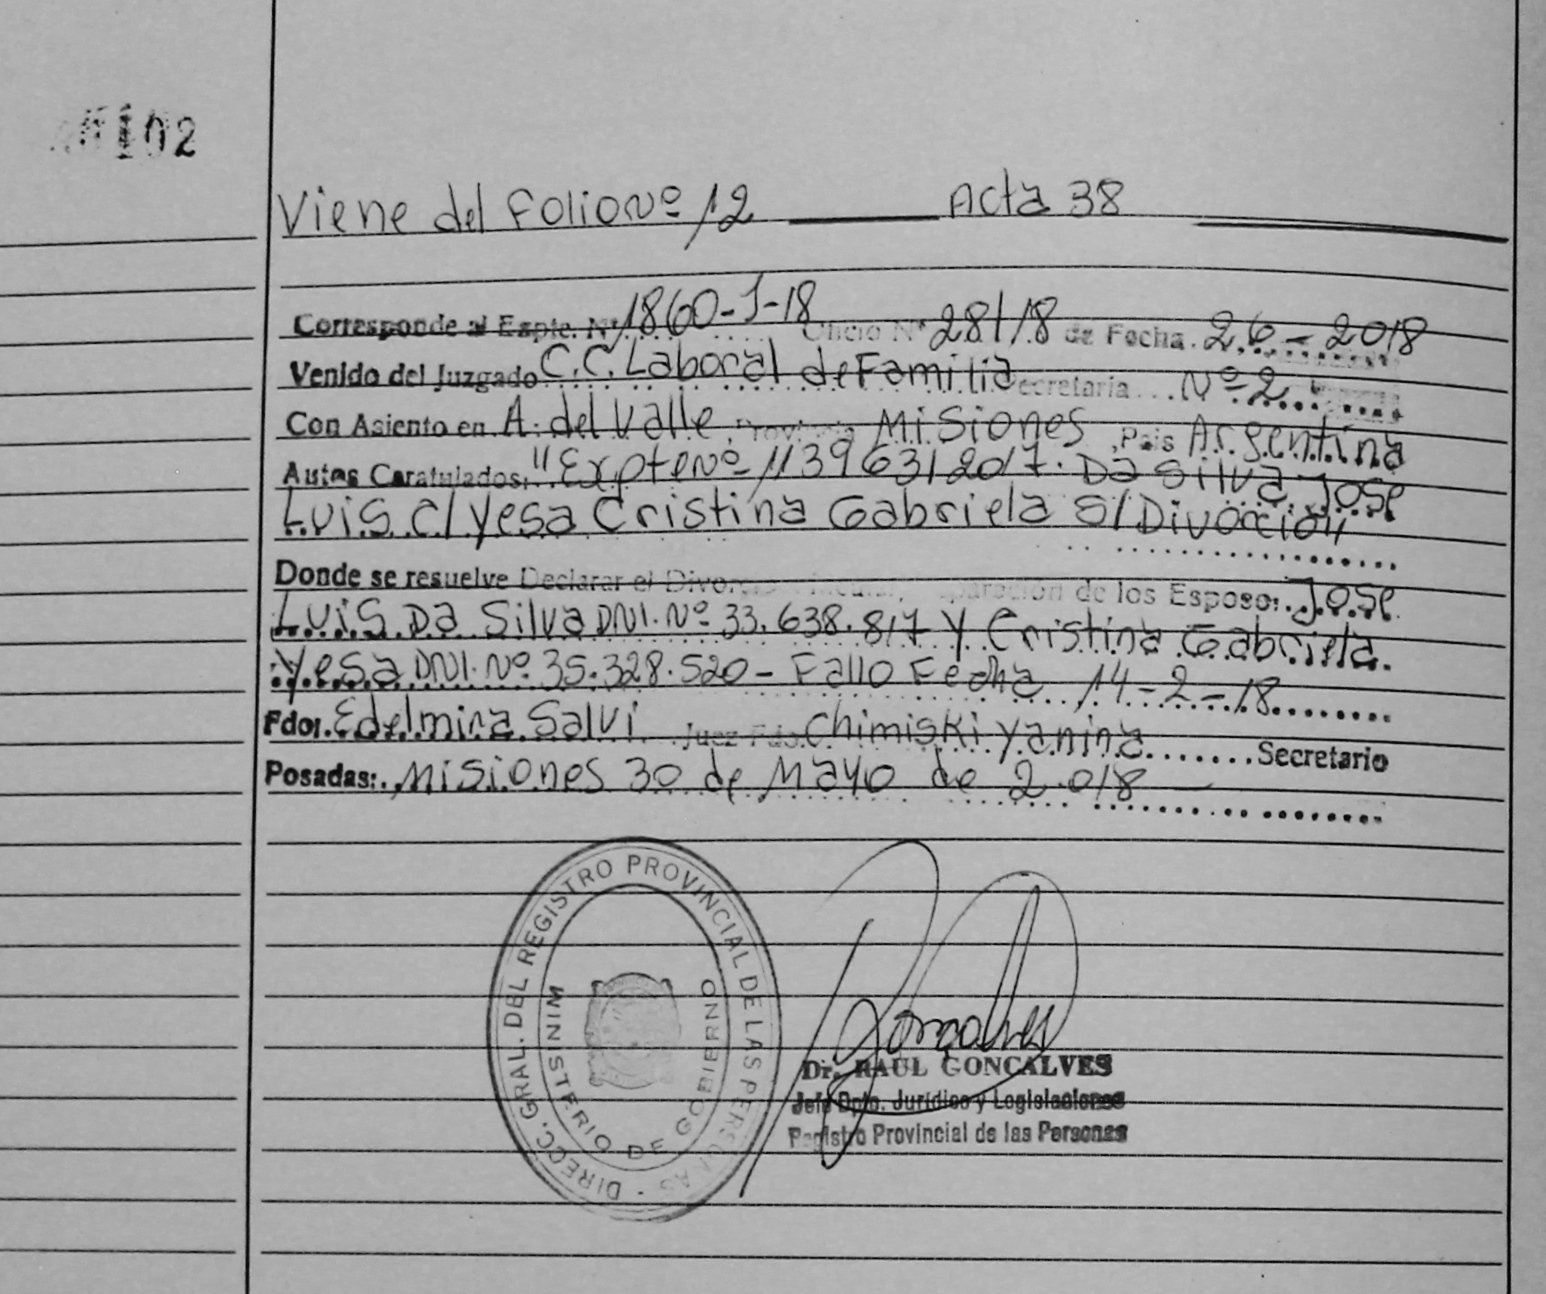 102
Viene del Folio Nº 12 Acta 38
Corresponde al Expte. Nº 1860-J-18 Oficio Nº 281/18 de Fecha. 26 - 2018
Venido del Juzgado C.C. Laboral de Familia Secretaria... Nº 2
Con Asiento en A. del Valle, Provincia Misiones, Pais Argentina
Autos Caratulados: "Expte Nº 113963/2017. Da Silva Jose
Luis C/ Yesa Cristina Gabriela S/ Divorcio"
Donde se resuelve Declarar el Divorcio Vincular, Separación de los Esposos: Jose
Luis Da Silva DNI. Nº 33.638.817 Y Cristina Gabriela
Yesa DNI. Nº 35.328.520 - Fallo Fecha 14-2-18
Fdo. Edelmira Salvi Juez Fdo. Chimiski Yanina Secretario
Posadas: Misiones 30 de Mayo de 2.018
DIRECC. GRAL. DEL REGISTRO PROVINCIAL DE LAS PERSONAS -
MINISTERIO DE GOBIERNO
Dr. RAUL GONCALVES
Jefe Dpto. Jurídico y Legislaciones
Registro Provincial de las Personas